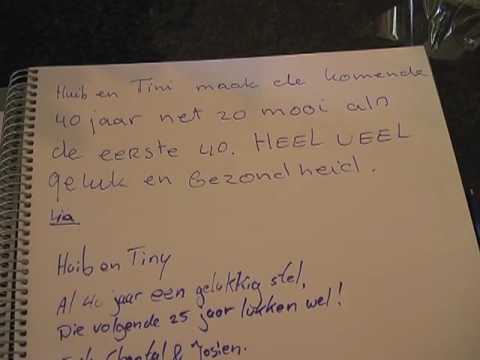 Huib en Tini maak de komende
40 jaar net zo mooi als
de eerste 40. HEEL VEEL
geluk en Gezondheid.
Lia
Huib en Tiny
Al 40 jaar een gelukkig stel,
Die volgende 25 jaar lukken wel!
Chantal & Josien.